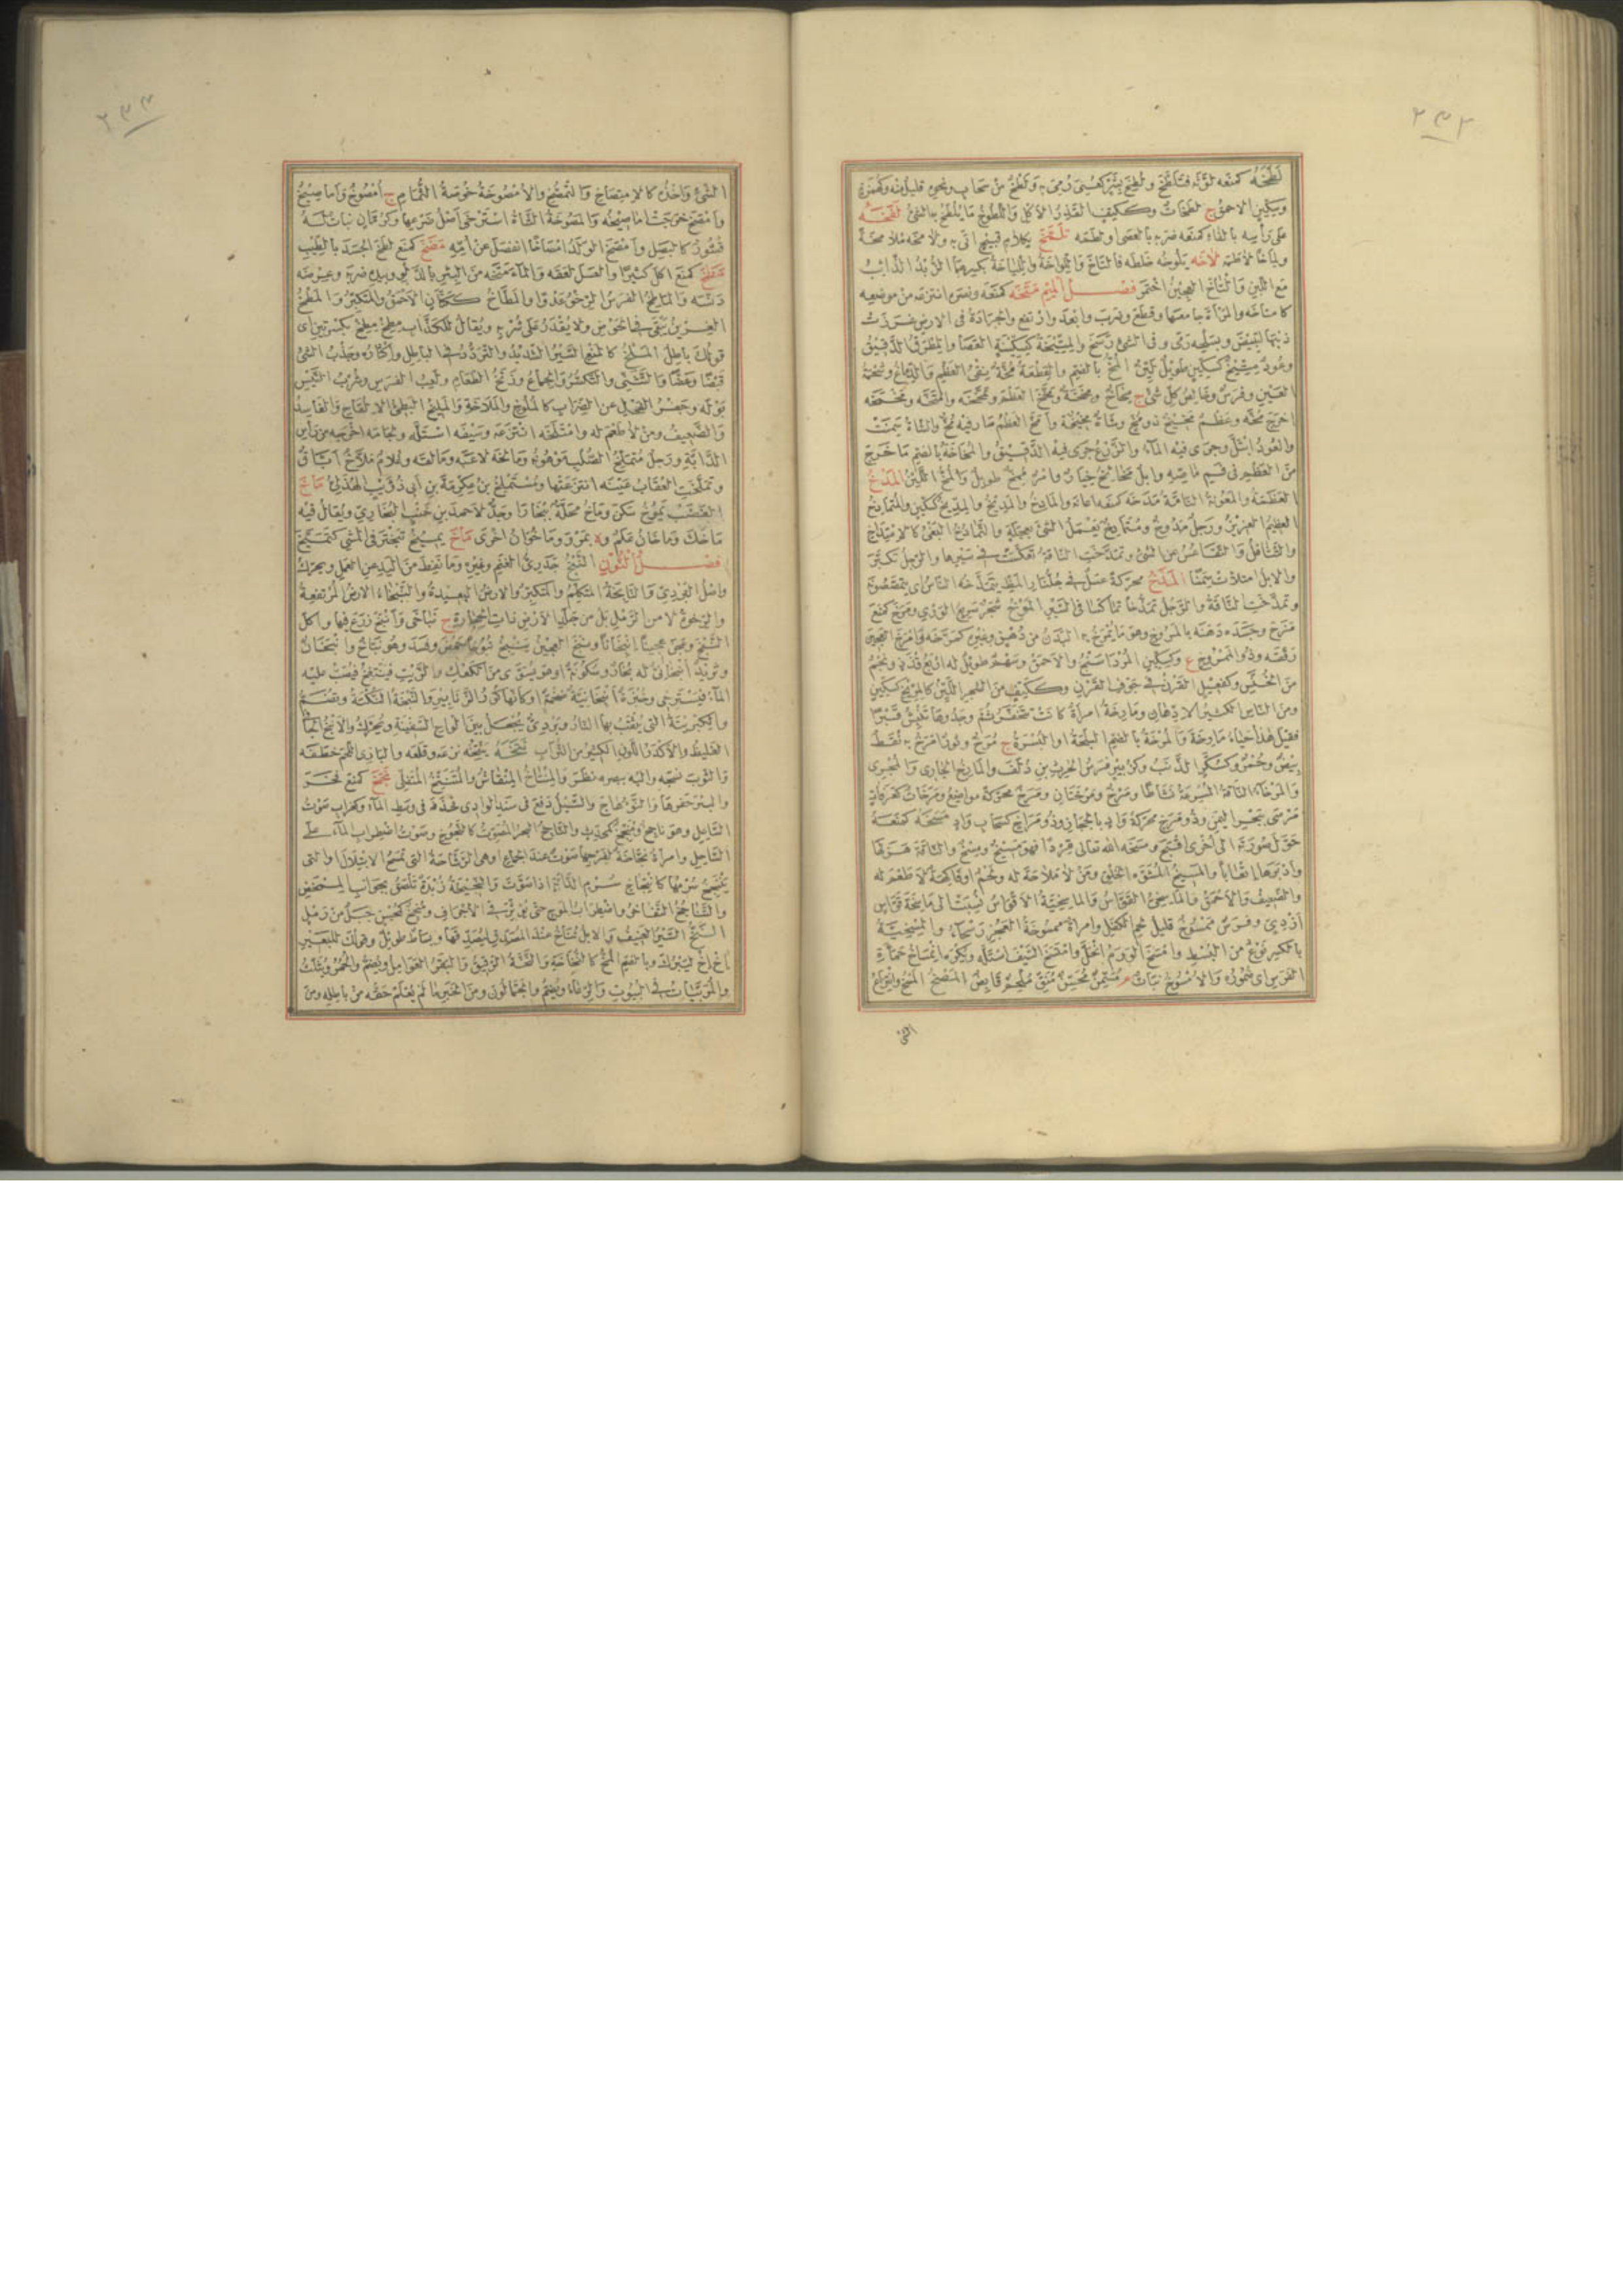 ٢٣٢
لَطَخَه كمنعه لوّثه فتلطّخ ولُطِخَ بشرّ كعُنِىَ رُمِىَ به ولَطْخٌ من سحاب ونحوه قليل منه وكهُمَزة
وسِكّين الاحمق ج لطخات وككتف القَذِرُ الاكل واللَّطوخ ما يُلْطَخ به الشئ لَفَخَه
على رأسه كمنعه ضربه بالعصا ولطمه تلمّخ بكلام قبيح اتى به ولامخه ملامخة
ولِماخًا لاطمه لاخَه يلوخه خلطه فالتاخ
مع اللبن والتاخ العجين اختمر فصل الميم مَتَخَه كمنعه ونصره انتزعه من موضعه
كامتاخه والمرأة جامعها وقطع وضرب وابعد وارتفع والجرادة فى الارض غرزت
ذنبها لتبيض وبسلحه رمى وفى الشئ رسخ والمِتّيخة كسكينة العصا والمطرق الدقيق
وعود مِتّيخ كسكين طويل ليّن المُخّ بالضم والقطعة مُخّة نِقْىُ العظم والدماغ وشحمة
العين وفرس وخالص كل شئ ج مِخاخ ومِخَخة ومخّخ العظم وتمخّخه وامتخّه ومخمخه
اخرج مُخّه وعظم مخيخ ذو مخ وشاة مخيخة وامخّ العظم صار فيه مخ والشاة سمنت
والعود ابتلّ وجرى فيه الماء والزرع جرى فيه الدقيق والمُخاخة بالضم ما خرج
من العظم فى فم ماصّه وابل مخائخ خيار وامر مُمِخّ طويل والمُخّ الليّن المَدْخ
العظمة والمعونة التامة مدخه كمنعه اعانه والمادخ والمديخ والمدّيخ كسكين والمتمادخ
العظيم العزيز
والتثاقل والتقاعس عن الشئ وتمدّخت الناقة تعكّست فى سيرها والرجل تكبّر
والابل امتلأت سمنا المَذَخ محركة عسل فى جلنار المظ يتمذّخه الناس اى يتمصصونه
وتمذّخت الناقة والرجل المَرْخ شجر سريع الورى ومَرَخ كمنع
مزح وجسده دهنه بالمروخ وهو ما يمرخ به البدن من دهن وغيره كمرّخه وامرخ العجين
رققه وذو الممروخ ع وكسكين المرداسنج والاحمق وسهم طويل له اربع قذذ ونجم
من الخنس وكقبيل القرن فى جوف القرن وككتف من الشجر اللين كالمرّيخ كسكين
ومن الناس الكثير الادهان ومارخة امرأة كانت تتخفر ثم وجدوها تنبش قبرا
فقيل هذا حياء مارخة والمرخة بالضم البلحة او البسرة ج مُرَخ وثور امرخ به نقط
بيض وحمر وكسكّر الذئب وكزبير فرس الحرث بن دلف والمارخ الجارى والمجرى
والمرخاء الناقة المسرعة نشاطا ومرخ ومرختان ومرخ محركة مواضع ومرخات كعرفات
مرسى ببحر اليمن وذو مرخ محركة واد بالحجاز وذو مراخ كسحاب واد مَسَخَه كمنعه
حوّل صورته الى اخرى اقبح ومسخه الله تعالى قردا فهو مسخ ومسيخ والناقة هزلها
وادبرها اتعابا والمسيخ المشوّه الخلق ومن لا ملاحة له ولحم او فاكهة لا طعم له
والضعيف والاحمق والماسخىّ القوّاس والماسخية الاقواس نسبت الى ماسخة قوّاس
ازدى وفرس ممسوخ قليل لحم الكفل وامرأة ممسوخة العجز رسحاء والمسخية
بالكسر نوع من البسط وامسخ الورم انحلّ وامتسخ السيف استله ويكره انمساخ حماة
الفرس اى ضموره والامسوخ نبات م مسمن محسن منق ملحم قابض المَصْخ المسخ وانتزاع
الشئ
٢٣٣
الشئ واخذه كالامتصاخ والتمصّخ والامصوخة خوصة الثمام ج امصوخ واماصيخ
وامصخ خرجت اماصيخه والمصوخة الشاة استرخى اصل ضرعها وكرمّان نبات له
قشور كالبصل وامّصخ الولد امّصاخا انفصل عن امه مَضَخَ كمنع لطخ الجسد بالطيب
مَطَخَ كمنع اكل كثيرا والعسل لعقه والماء متخه من البئر بالدلو وبيده ضربه وعرضه
دنسه والماطخ الفرس الرخو عدوا والمطّاخ ككتّان الاحمق والمتكبر والمطخ
الغرين يبقى فى الحوض ولا يقدر على شربه ويقال للكذاب مِطِخْ مِطِخْ بكسرتين اى
قولك باطل المَلْخ كالمنع السير الشديد والتردد فى الباطل واكثاره وجذب الشئ
قبضا وعضّا والتثنى والتكسر والجماع وزنخ الطعام ولعب الفرس وشرب التيس
بوله وجفر الفحل عن الضراب كالملوخ والملاخة والمليخ البطئ الالقاح والفاسد
والضعيف ومن لا طعم له وامتلخه انتزعه وسيفه استله ولجامه اخرجه من رأس
الدابة ورجل متملخ الصلب موهونه ومالخه لاعبه ومالقه وغلام ملاخ ابّاق
وتملّخت العقاب عينه انتزعتها ومستملخ بن عكرمة بن ابى ذؤيب الهذلى ماخَ
الغضب يموخ سكن وماخ محلة ببخارا وجد لاحمد بن خنب البخارى ويقال فيه
ماخك وماخان علم وة بمرو وماخوان اخرى ماخَ يميخ تبختر فى المشى كتميّخ
فصل النون النَّبْخ جدرى الغنم وغيره وما نفط من اليد عن العمل ويحرك
واصل البردى والنابخة المتكلم والمتكبر والارض البعيدة والنبخاء الارض المرتفعة
والرخوة لا من الرمل بل من جلد الارض ذات الحجارة ج نباخى وانبخ زرع فيها واكل
النبخ وعجن عجينا انبخانا ونبخ العجين ينبخ نبوخا حمض وفسد وهو نبّاخ وانبخان
وثريد انبخانى له بخار وسكونة او هو يسوى من الكعك والزيت فينتفخ فيصب عليه
الماء فيسترخى وخبزة انبخانية ضخمة او كأنها كور الزنابير والنبخة النكتة وتضم
والكبريتة التى يثقب بها النار وبردى يجعل بين الواح السفينة ويحرك والانبخ الجافى
الغليظ والاكدر اللون الكثير من التراب نتخه ينتخه نزعه وقلعه والبازى اللحم خطفه
والثوب نسجه واليه بصره نظر والمنتاخ المنقاش والمتنتخ المتفلى نَجَخَ كمنع فخر
والبئر حفرها والنوء هاج والسيل دفع فى سند الوادى فحذفه فى وسط الماء وكغراب صوت
السعل وهو ناجخ ومنجخ كمحدث والناجخ البحر المصوت كالنجوخ وصوت اضطراب الماء على
الساحل وامرأة نجاخة لفرجها صوت عند الجماع او هى الرشاحة التى تمسح الابتلال او التى
ينتجخ سرمها كانتجاخ سرم الدابة اذا صوتت والنجيخة زبدة تلصق بجوانب الممخض
والتناجخ التفاخر واضطراب الموج حتى يؤثر فى الاجراف ومنجخ كمحسن جبل من رمل
النَّخّ السير العنيف والابل تناخ عند المصدق ليصدقها وبساط طويل وقولك للبعير
اخ اخ ليبرك وبالضم المخ كالنخاخة والنخة الرقيق والبقر العوامل ويضم والحمر ويثلث
والمربيات فى البيوت والرعاء ويضم والجمالون ومن الخبر ما لم يعلم حقه من باطله ومن